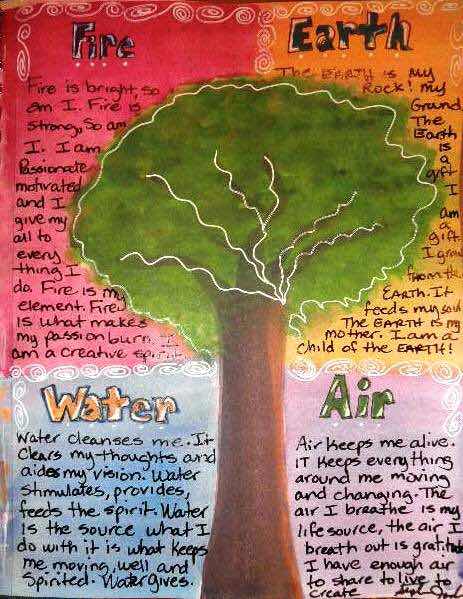 Fire
Fire is bright, so
am I. Fire is
strong, So am
I. I am
Passionate
motivated
and I
give my
all to
every
thing I
do. Fire is my
element. Fire
is what makes
my passion burn. I
am a creative spirit.
Earth
The EARTH is my
Rock! my
Ground
The
Earth
is
a
gift
I
am
a
gift.
I grow
from the
EARTH. It
feeds my soul
The EARTH is my
mother. I am a
child of the EARTH!
Water
Water cleanses me. It
clears my thoughts and
aides my vision. Water
Stimulates, provides,
feeds the spirit. Water
is the source, what I
do with it is what keeps
me moving, well and
Spirited. Water gives.
Air
Air keeps me alive.
IT keeps everything
around me moving
and changing. The
air I breathe is my
life source, the air I
breath out is gratitude
I have enough air
to share to live to
create